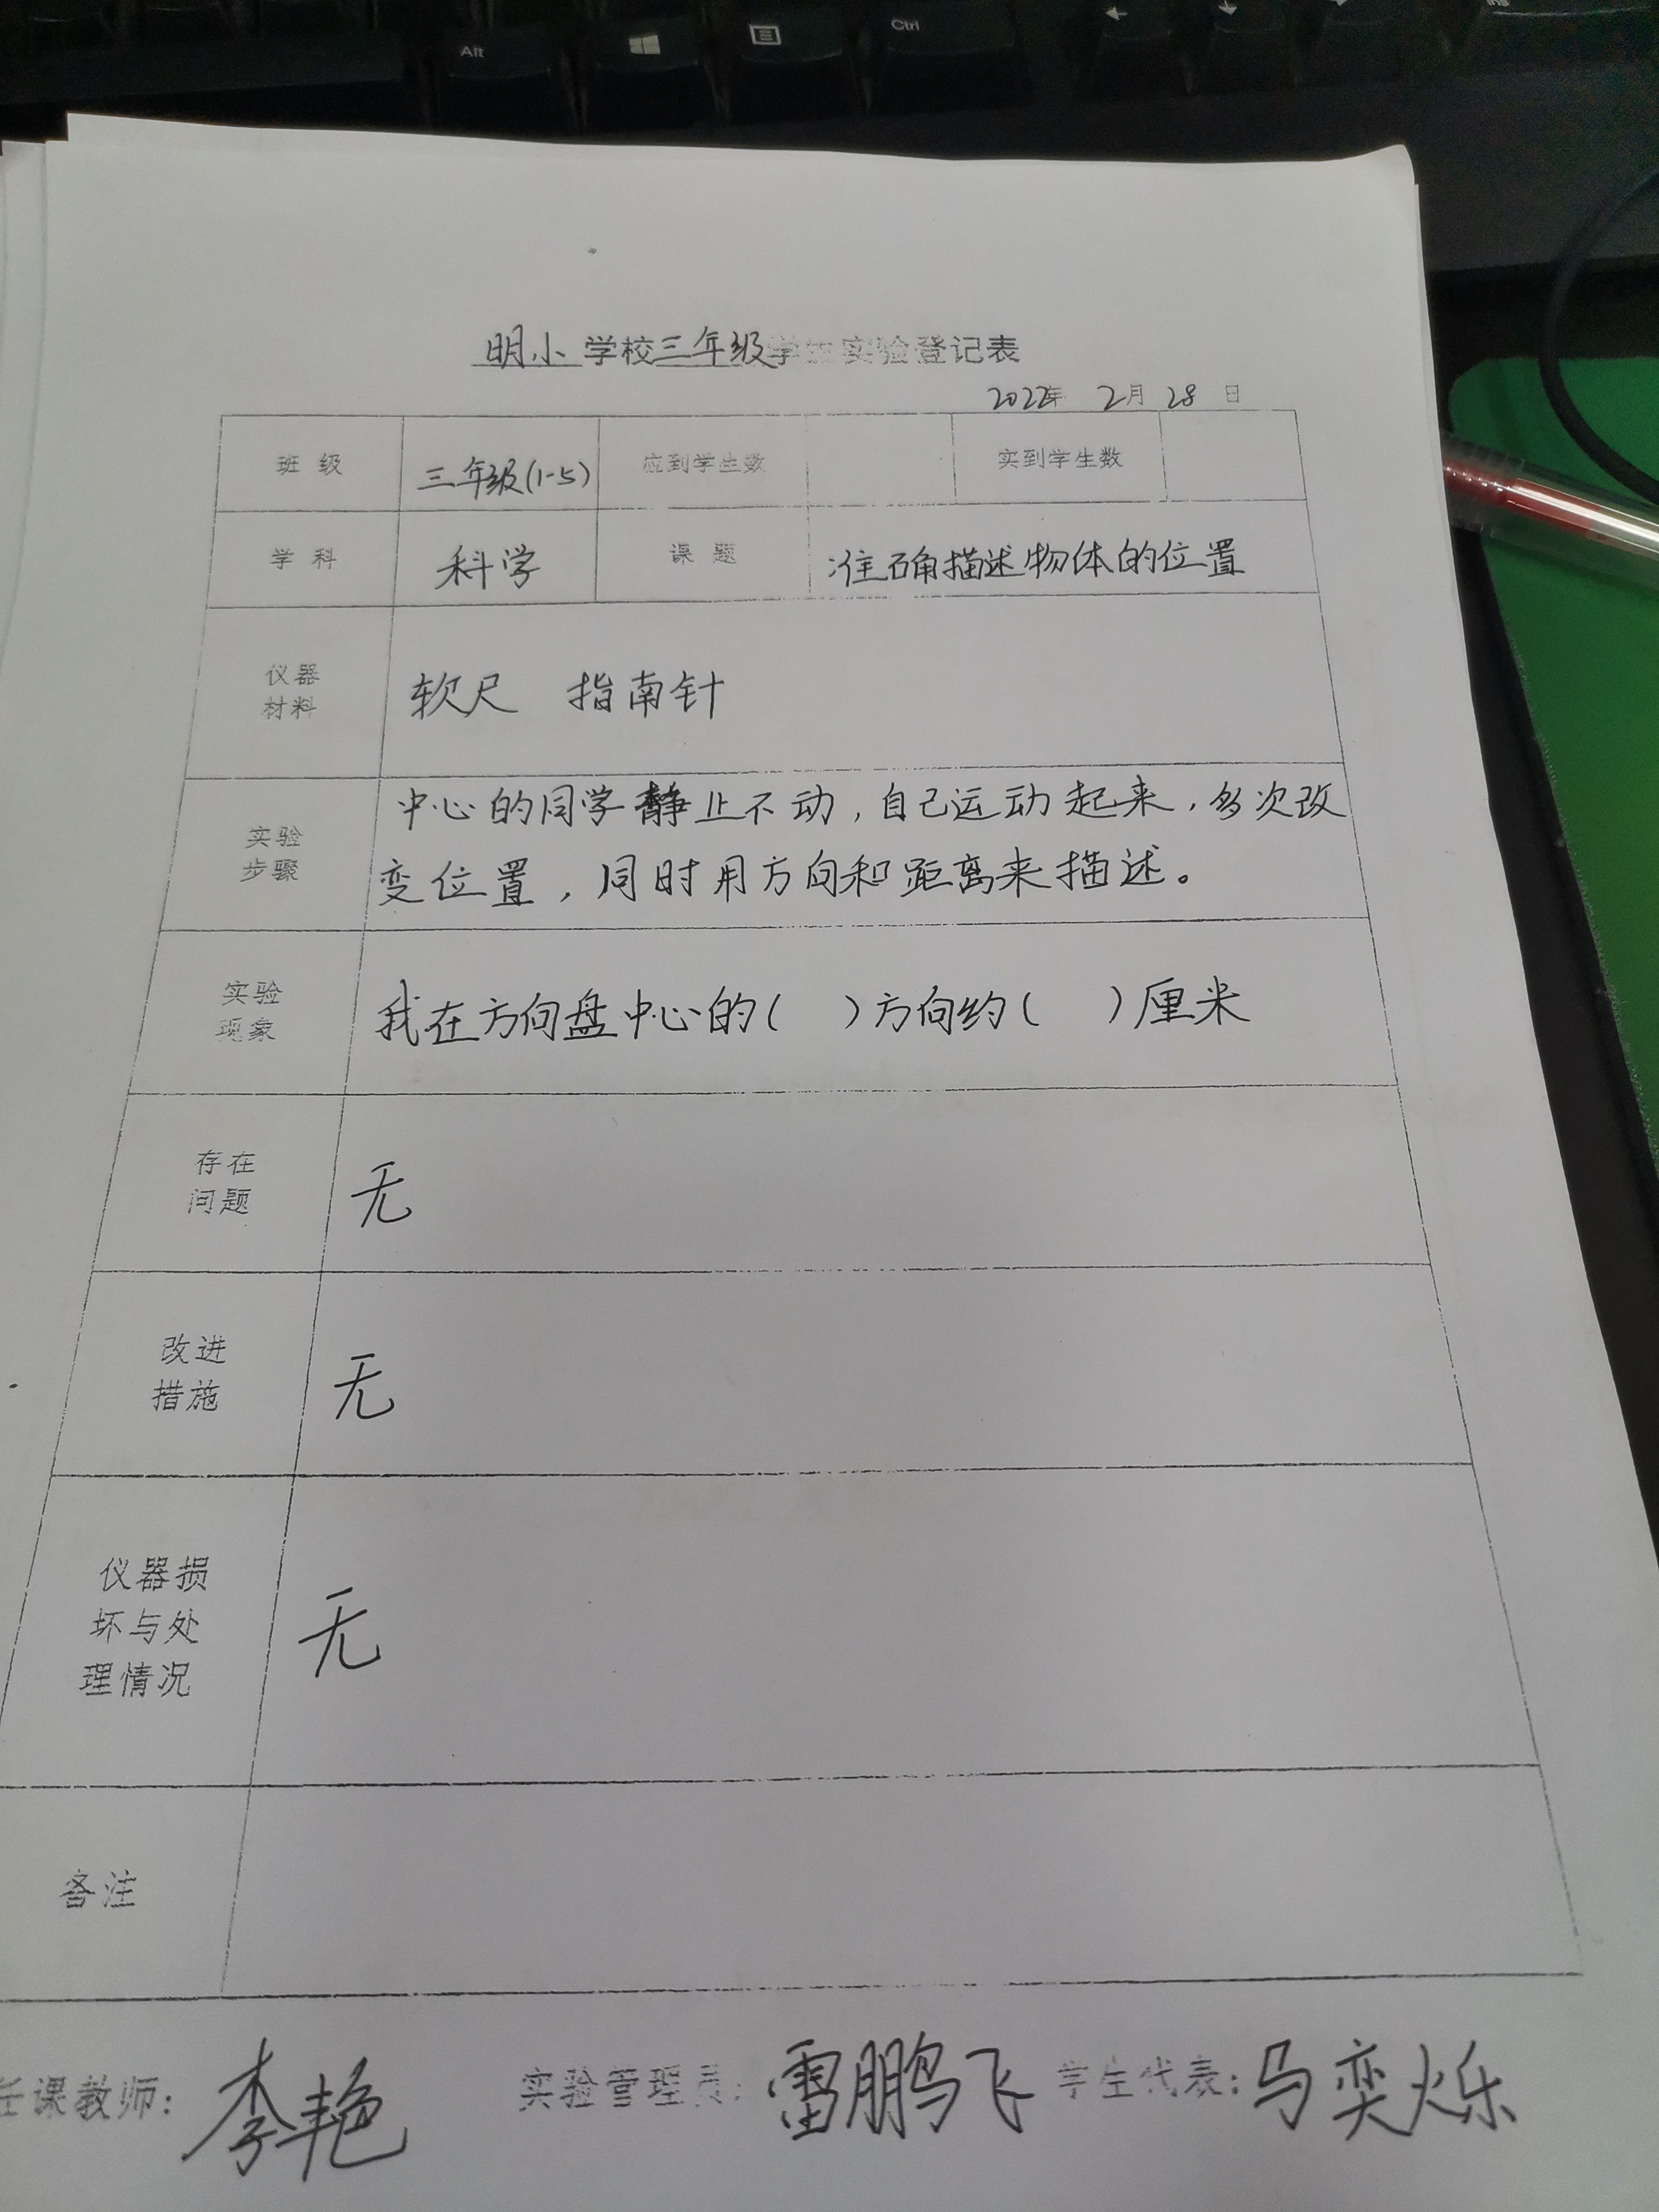 Alt
Ctrl
Ins
明小学校三年级学生实验登记表
2022年 2月 28 日
班 级 三年级(1-5) 应到学生数 实到学生数
学 科 科学 课 题 准确描述物体的位置
仪器
材料
软尺 指南针
实验
步骤
中心的同学静止不动,自己运动起来,多次改
变位置,同时用方向和距离来描述。
实验
现象
我在方向盘中心的( )方向约( )厘米
存在
问题
无
改进
措施
无
仪器损
坏与处
理情况
无
备注
任课教师:李艳 实验管理员:雷鹏飞 学生代表:马奕烁